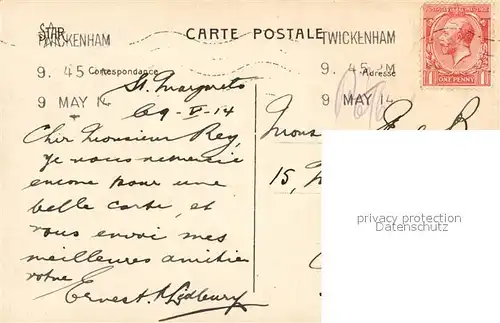 STAR
CARTE POSTALE
TWICKENHAM
TWICKENHAM
9. 45 PM
Correspondance
9. 45 PM
Adresse
9 MAY 14
9 MAY 14
ONE PENNY
St. Margrets
9-V-14
Cher Monsieur Rey,
Je vous remercie
encore pour une
belle carte, et
vous envoi mes
meilleures amities
votre
Ernest A Ledbury
Mons
15,
privacy protection
Datenschutz